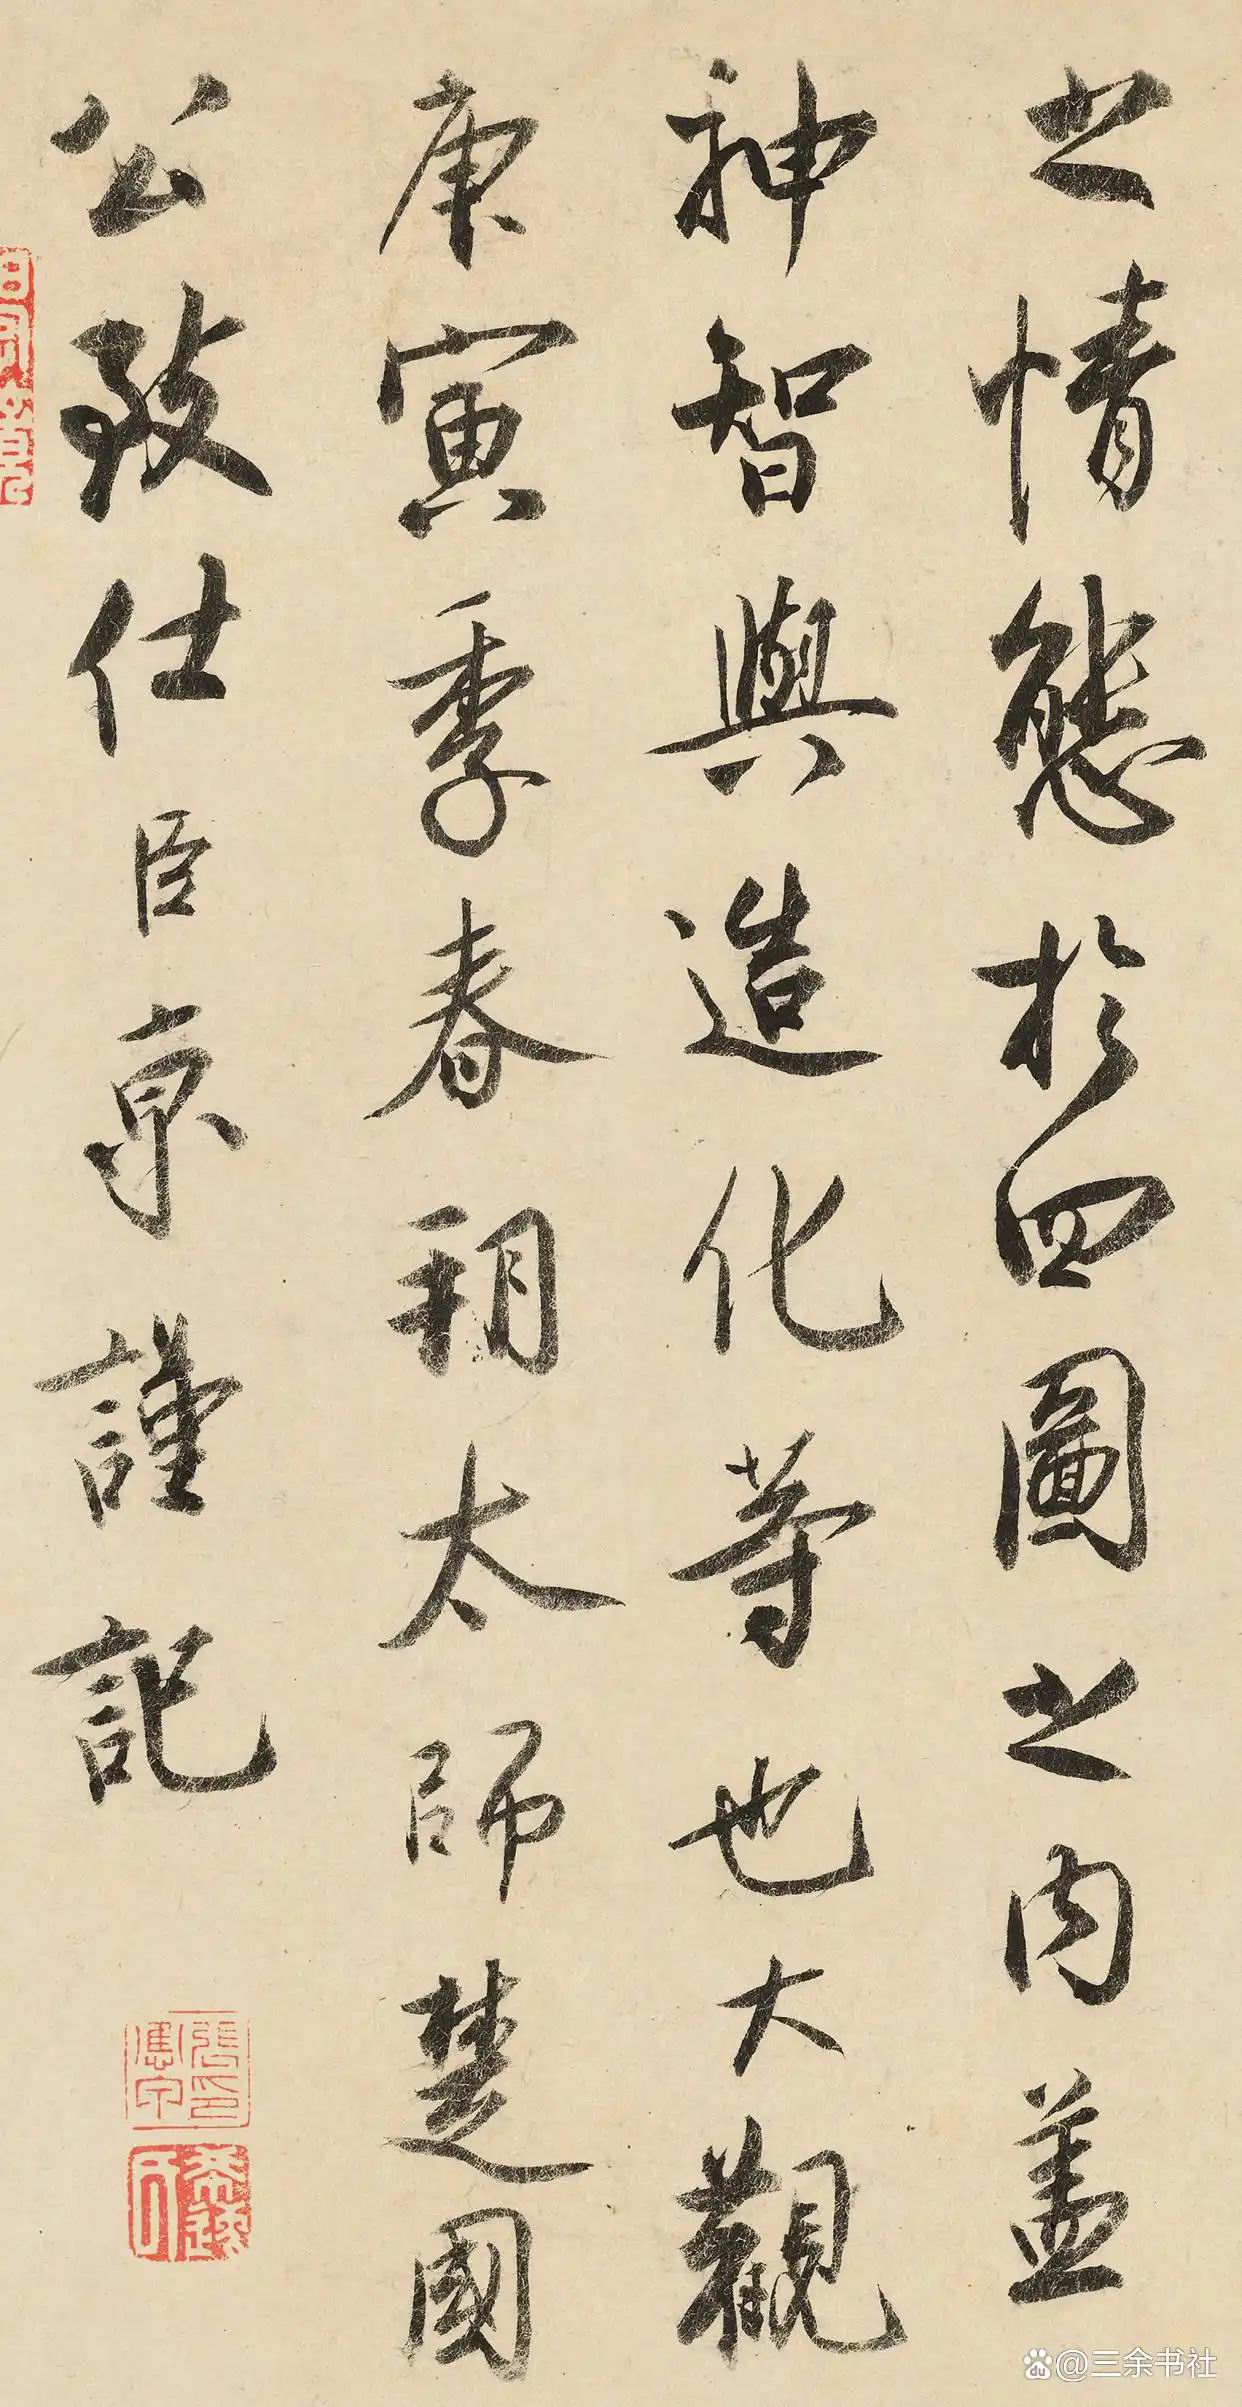 之情態於四圖之内蓋
神智與造化等也大觀
庚寅季春朔太師楚國
公致仕臣京謹記
張應甲印
@三余书社